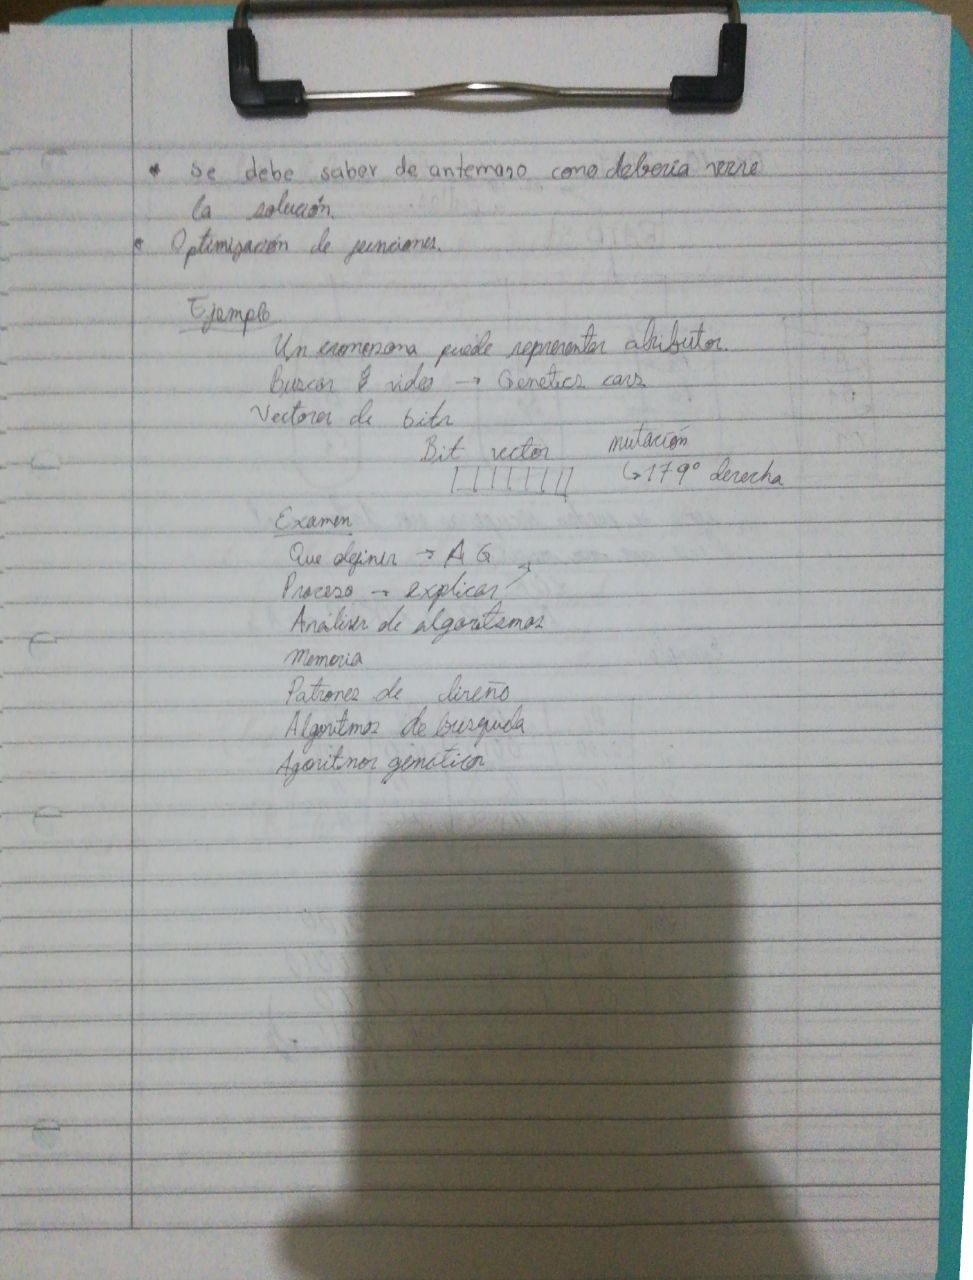 * Se debe saber de antemano como debería verse
la solución.
* Optimización de funciones.
Ejemplo
Un cromosoma puede representar atributos.
Buscar video → Genetics cars
Vectores de bits
Bit vector mutación
↳ 179° derecha
Examen
Que definir → AG
Proceso → explicar
Análisis de algoritmos
Memoria
Patrones de diseño
Algoritmos de busqueda
Agoritmos genéticos